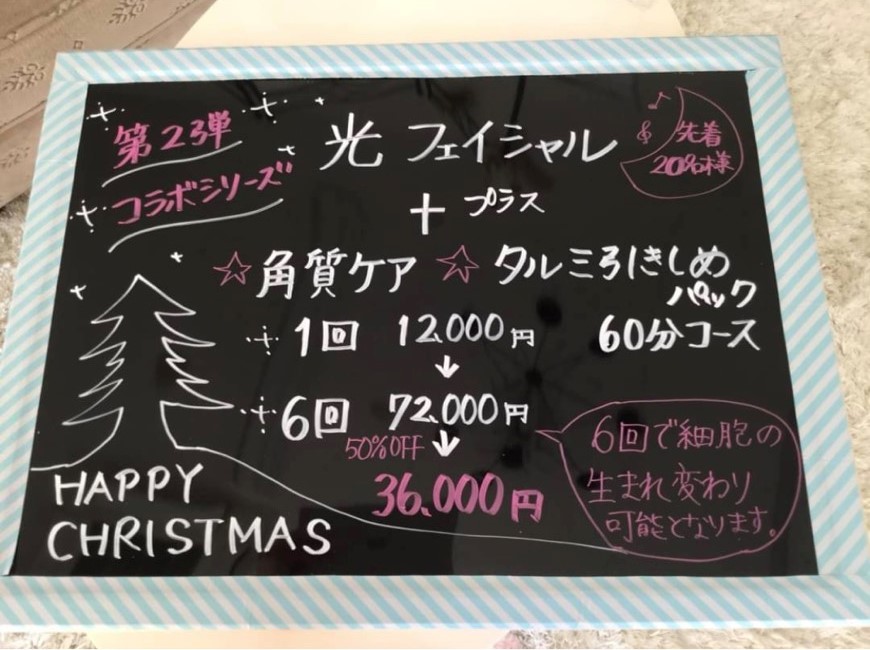 第2弾
コラボシリーズ
光 フェイシャル
先着
20名様
+ プラス
☆角質ケア ☆タルミ引きしめ
パック
1回 12.000円 60分コース
↓
6回 72.000円
50%OFF ↓
36.000円
6回で細胞の
生まれ変わり
可能となります。
HAPPY
CHRISTMAS